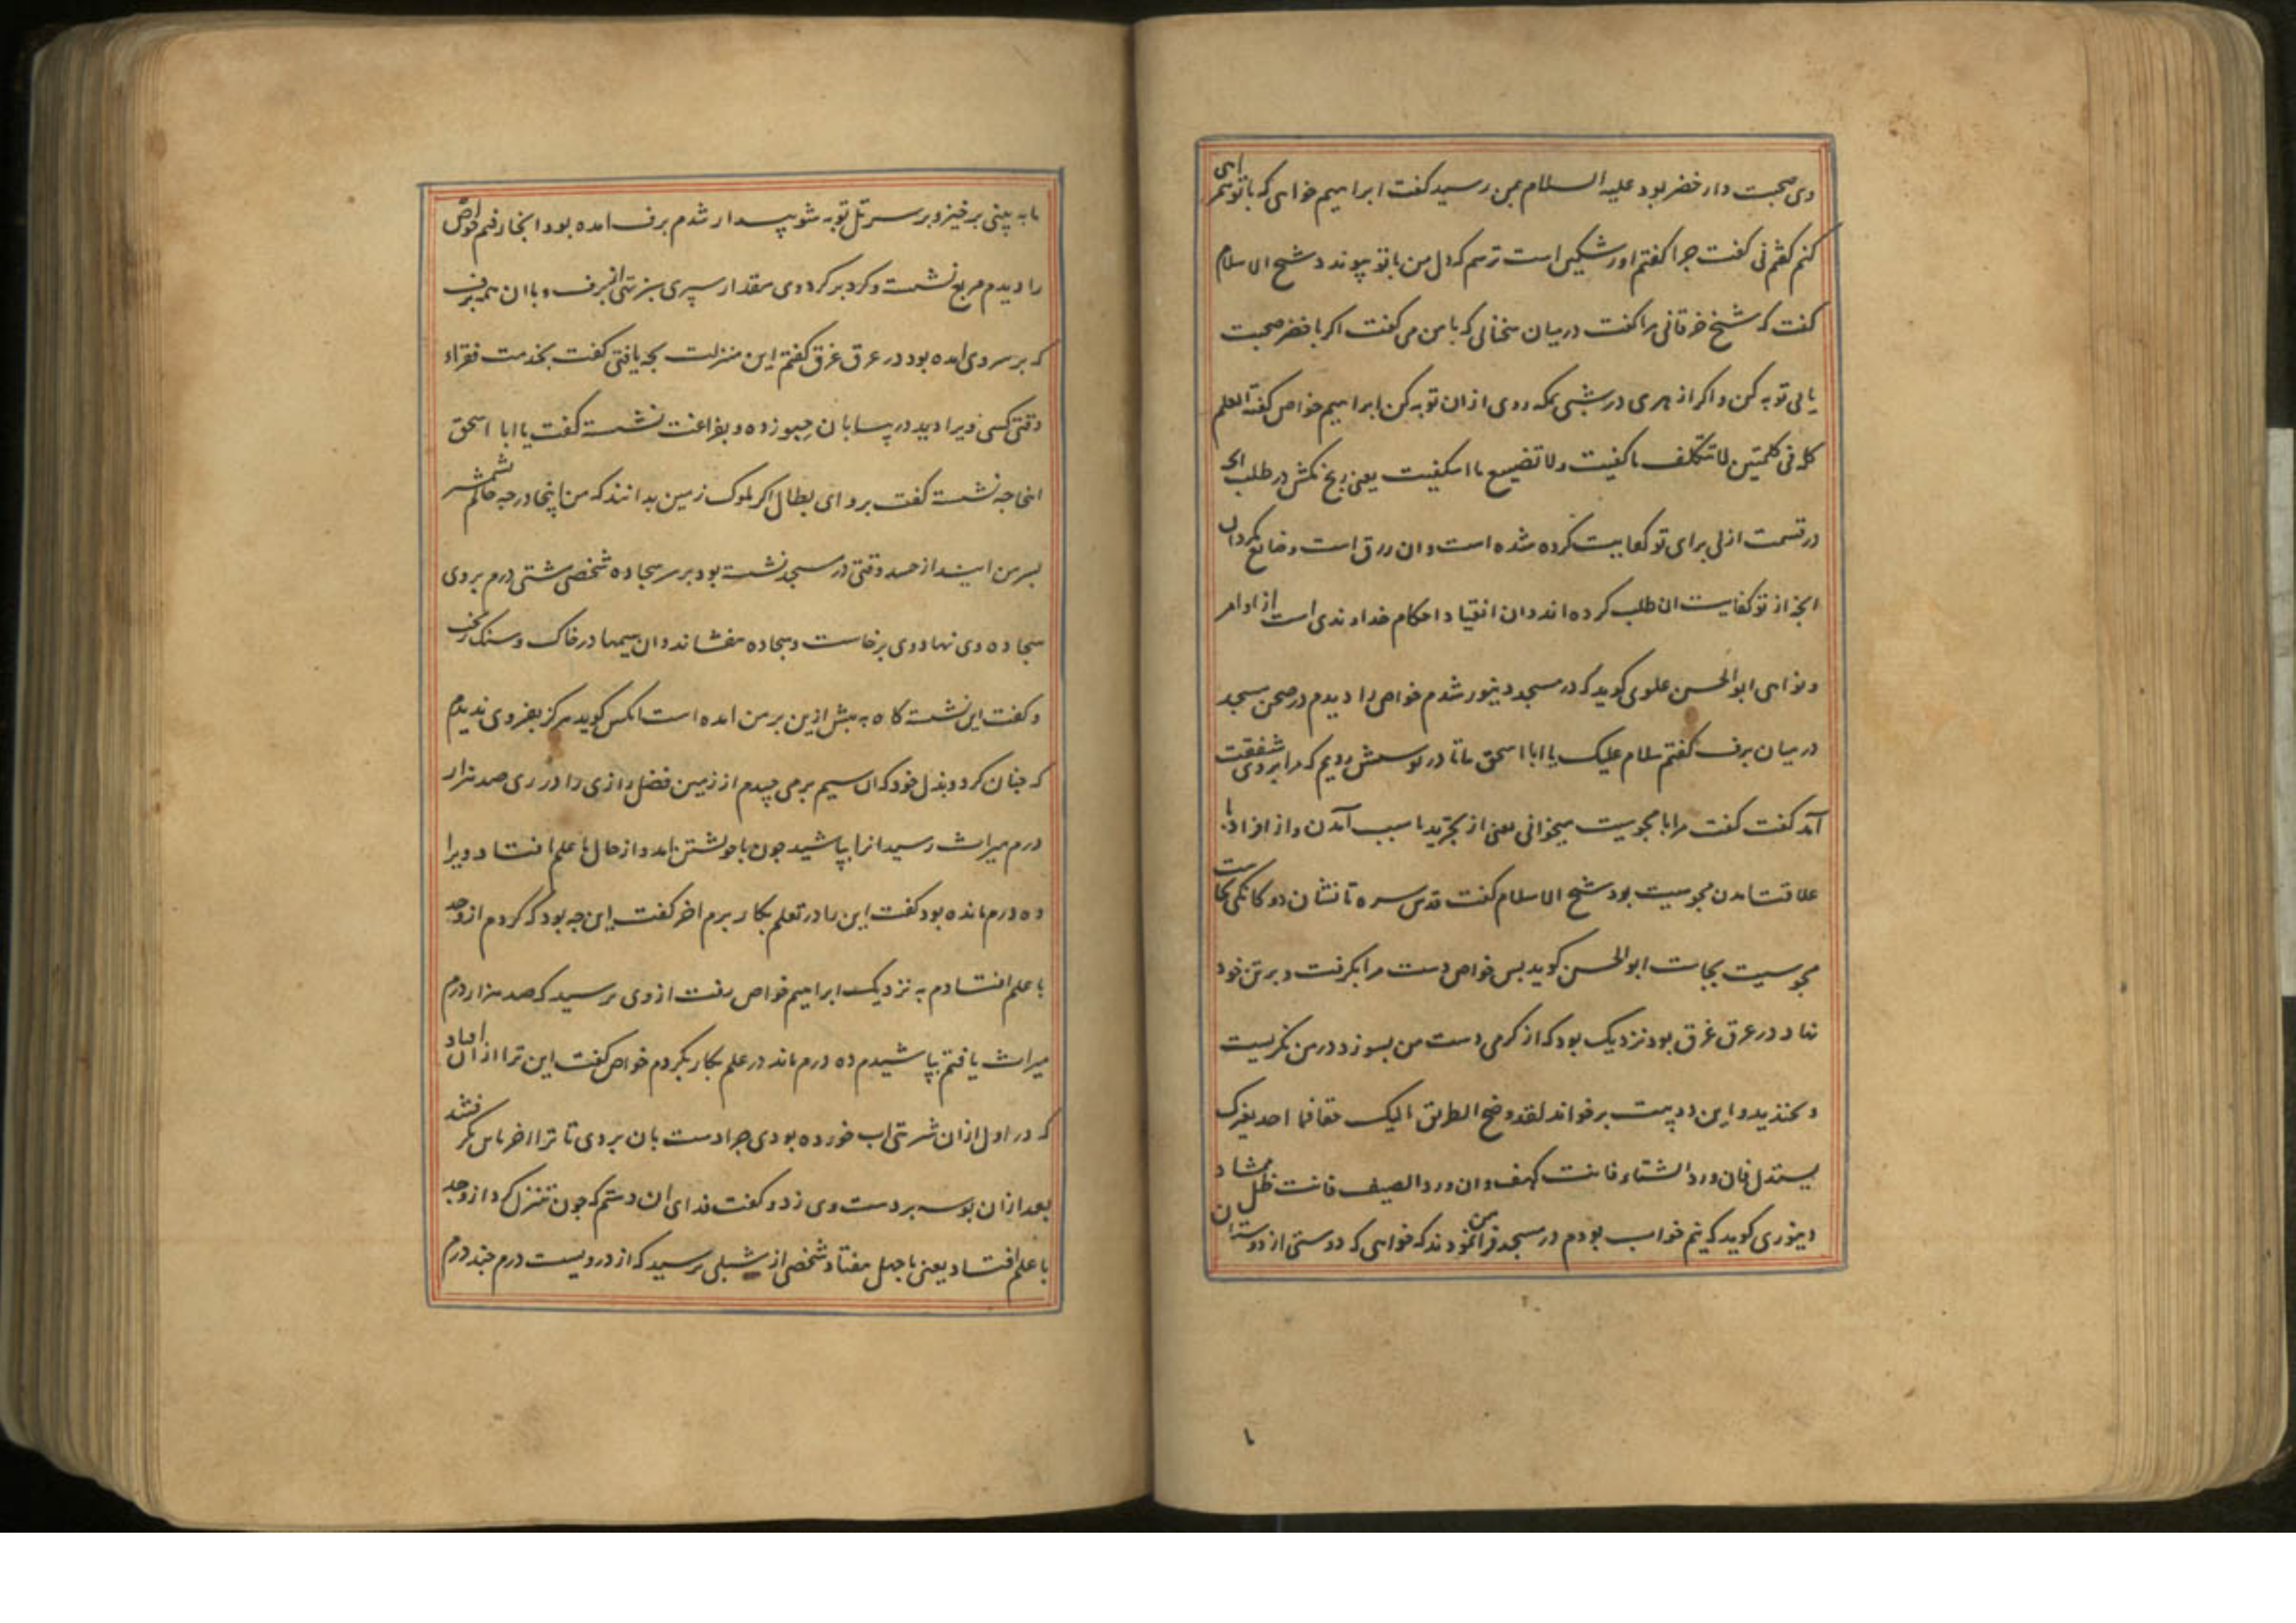 وی صحبت دار خضر بود علیه السلام بمن رسید کفت ابراهیم خواهی که با تو همراهی
کنم کفتم نی کفت چرا کفتم او رشکین است ترسم که دل من با تو پیوندد شیخ الاسلام
کفت که شیخ خرقانی مرا کفت درمیان سخنانی که با من می کفت اکر با خضر صحبت
یابی توبه کن و اکر از هری در شبی بمکه روی ازان توبه کن ابراهیم خواص کفته العلم
کله فی کلمتین لا تتکلف ما کفیت ولا تضییع ما استکفیت یعنی رنج مکش در طلب انچه
در قسمت ازلی برای تو کفایت کرده شده است و ان رزق است و ضایع مکردان
انچه از تو کفایت ان طلب کرده اند و ان انقیاد احکام خداوندی است از اوامر
و نواهی ابوالحسن علوی کوید که در مسجد دینور شدم خواص را دیدم در صحن مسجد
در میان برف کفتم سلام علیک یا ابا اسحق بیا تا در پوشش رویم که مرا بروی شفقت
آمد کفت کفت مرا با مجوسیت میخوانی یعنی از تجرید با سبب آمدن و از افراد با
علاقت امدن مجوسیت بود شیخ الاسلام کفت قدس سره تا نشان دوکانکی بجاست
مجوسیت بجاست ابوالحسن کوید پس خواص دست مرا بکرفت و بر تن خود
نهاد در عرق غرق بود نزدیک بود که از کرمی دست من بسوزد در من نکریست
و بخندید و این دو بیت برخواند لقد وضح الطریق الیک حقا فما احد یغیرک
یستدل فان ورد الشتاء فانت کهف و ان ورد الصیف فانت ظل ممشاد
دینوری کوید که نیم خواب بودم در مسجد فرا من نمودند که خواهی که دوستی از دوستان
ما به بینی برخیز و بر سر تل توبه شو بیدار شدم برف امده بود انجا رفتم خواص
را دیدم مربع نشسته و کرد بر کرد وی مقدار سپری سبز تهی از برف و با ان همه برف
که بر سر وی امده بود در عرق غرق کفتم این منزلت بچه یافتی کفت بخدمت فقراء
وقتی کسی ویرا دید در بیابان جپو زده و بفراغت نشسته کفت یا ابا اسحق
اینجا چه نشسته کفت برو ای بطال اکر ملوک زمین بدانند که من اینجا در چه حالم بشمشیر
بسر من ایند از حسد وقتی در مسجد نشسته بود بر سر سجاده شخصی مشتی درم بر وی
سجاده وی نهاد وی برخاست و سجاده بفشاند و ان سیمها در خاک و سنک ریخت
و کفت این نشستکاه به بیش ازین بر من امده است انکس کوید هرکز بعز وی ندیدم
که چنان کرد و بذل خود که ان سیم برمی چیدم از زمین فضل رازی را در ری صد هزار
درم میراث رسید انرا بپاشید چون باخویشتن امد و از حال با علم افتاد و ویرا
ده درم مانده بود کفت این را در تعلم بکار برم اخر کفت این چه بود که کردم از وجد
با علم افتادم به نزدیک ابراهیم خواص رفت از وی پرسید که صد هزار درم
میراث یافتم بپاشیدم ده درم ماند در علم بکار بکردم خواص کفت این ترا از ان افتاد
که در اول ازان شربتی اب خورده بودی چرا دست بان بردی تا ترا اخر باس نکر فتند
بعد ازان بوسه بر دست وی زد و کفت فدای ان دستم که چون تنزل کرد از وجد
با علم افتاد یعنی با جهل میفتاد شخصی از شبلی پرسید که از دویست درم چند درم